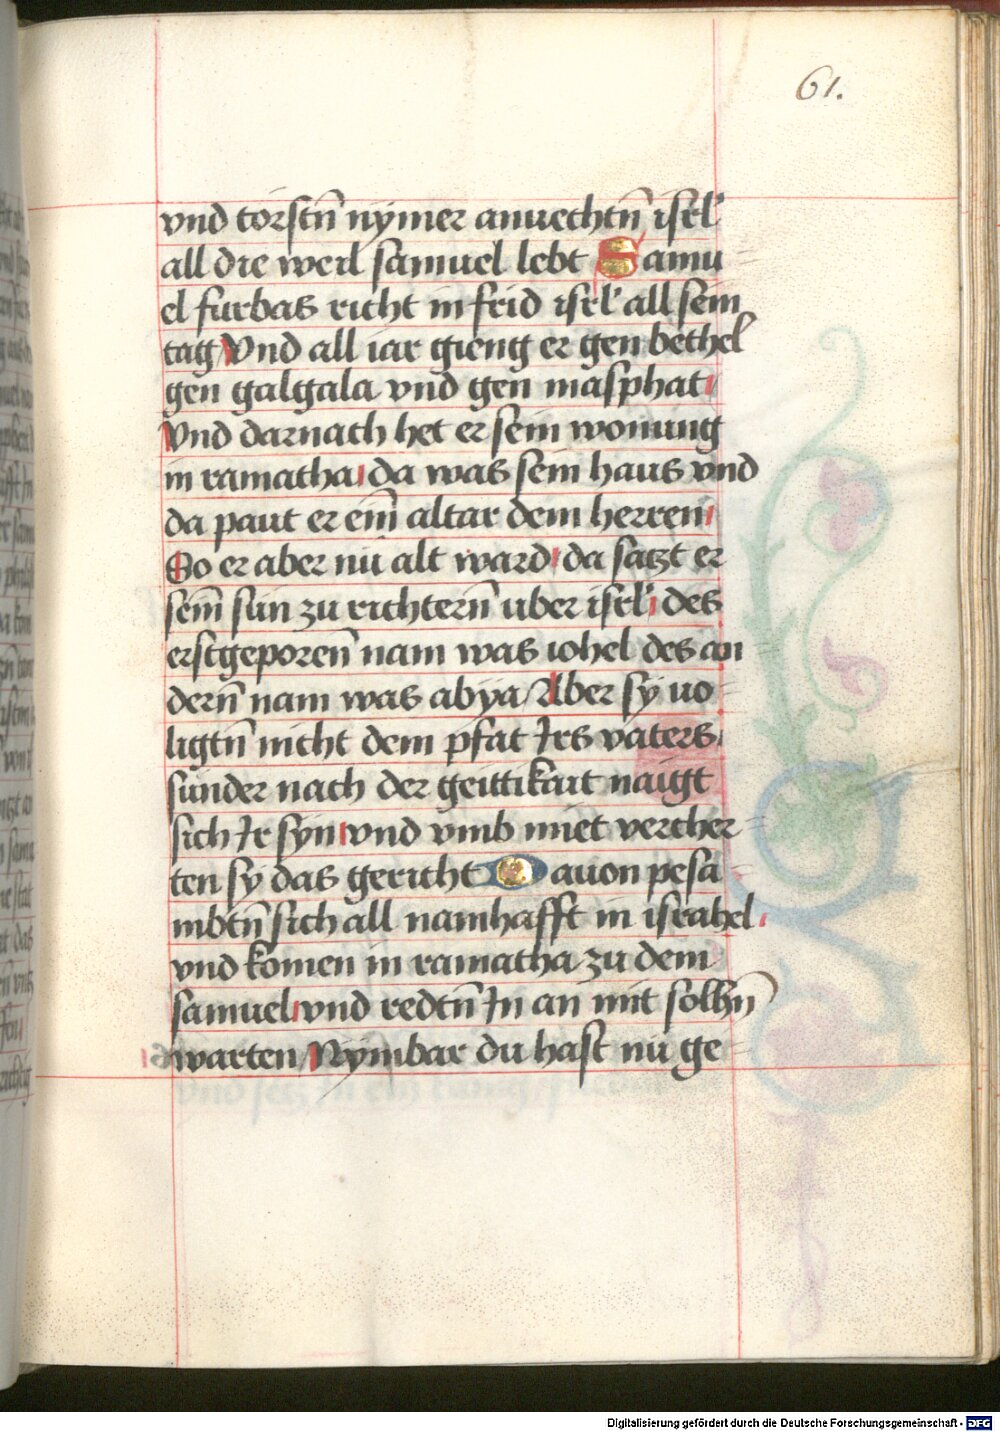 61.
vnd torstn̄ nymer anuechtn̄ isrl̓
all die weil samuel lebt Samu
el furbas richt in frid isrl̓ all sein
tag Vnd all iar gieng er gen bethel
gen galgala vnd gen masphat
Vnd darnach het er sein wonung
in ramatha da was sein haus vnd
da paut er ein̄ altar dem herren
So er aber nu alt ward da satzt er
sein̄ sün zu richtern̄ uber isrl̓ des
erstgeporen̄ nam was iohel des an
dern̄ nam was abya Aber sy uo
ligtn̄ nicht dem pfat Irs vaters
sunder nach der geittikait naigt
sich Ir syn vnd vmb miet vercher
ten sy das gericht Dauon pesa
mbtn̄ sich all namhafft in israhel
vnd komen in ramatha zu dem
samuel vnd redtn̄ In an mit solhn̄
warten Nymbar du hast nu ge
Digitalisierung gefördert durch die Deutsche Forschungsgemeinschaft - DFG